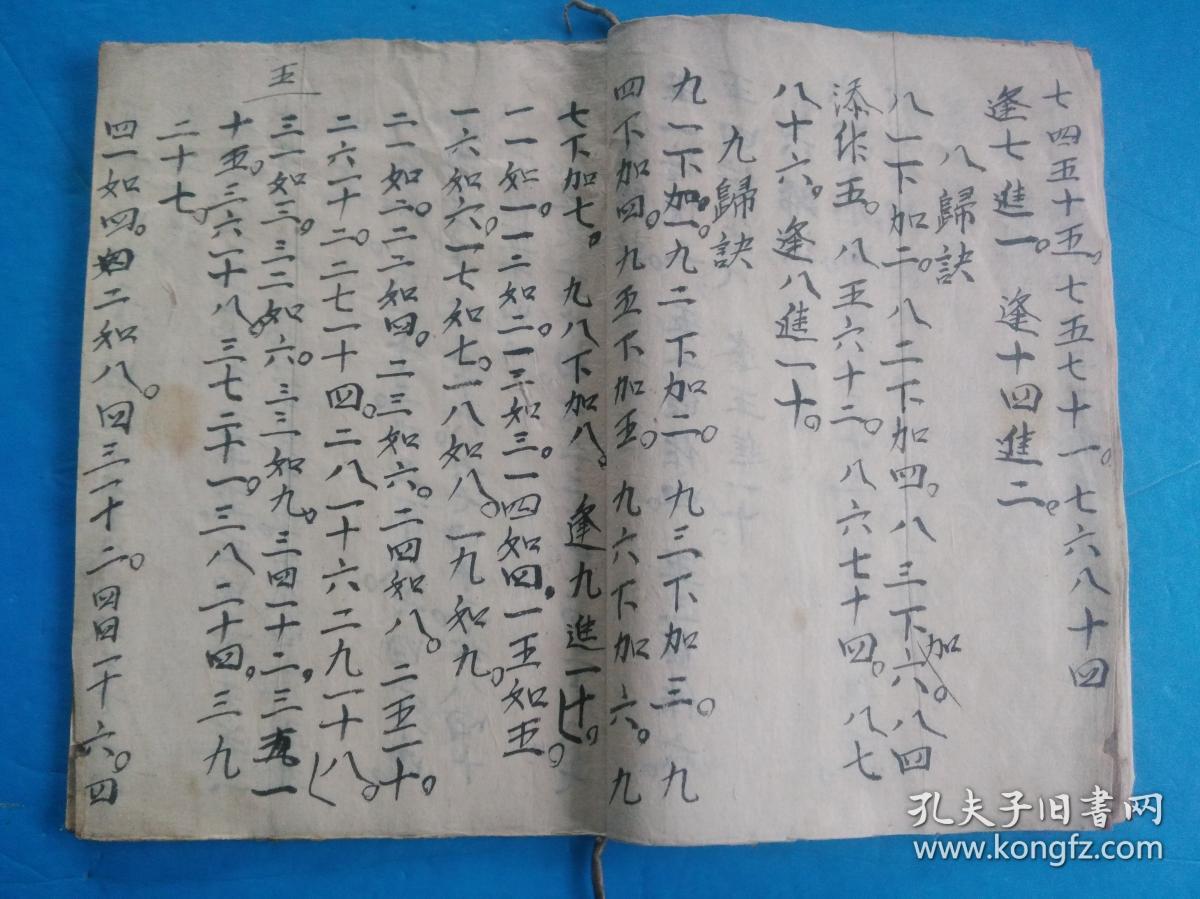 七四五十五。七五七十一。七六八十四
逢七進一。逢十四進二。
八歸訣
八一下加二。八二下加四。八三下加六。八四
添作五。八五六十二。八六七十四。八七
八十六。逢八進一十。
九歸訣
九一下加一。九二下加二。九三下加三。九
四下加四。九五下加五。九六下加六。九
七下加七。九八下加八。逢九進一十。
一一如一。一二如二。一三如三。一四如四。一五如五。
一六如六。一七如七。一八如八。一九如九。
二一如二。二二如四。二三如六。二四如八。二五一十。
二六一十二。二七一十四。二八一十六二九一十八。
三一如三。三二如六。三三如九。三四十二。三五一
十五。三六一十八。三七二十一。三八二十四。三九
二十七。
四一如四。四二如八。四三一十二。四四一十六。四
五
孔夫子旧书网
www.kongfz.com